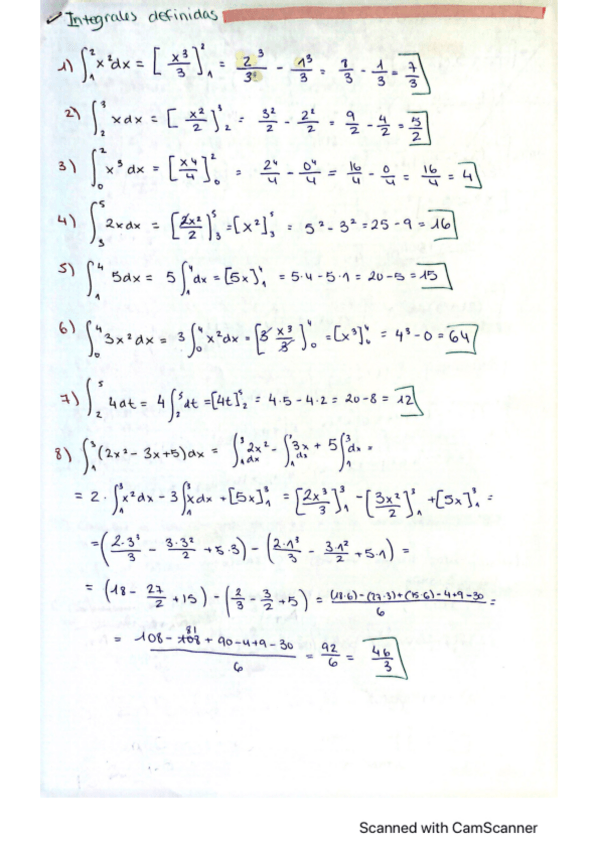 ✓ Integrales definidas
1) ∫₁² x²dx = [x³/3]²₁ = 2³/3 - 1³/3 = 8/3 - 1/3 = 7/3
2) ∫₂³ xdx = [x²/2]³₂ = 3²/2 - 2²/2 = 9/2 - 4/2 = 5/2
3) ∫₀² x³dx = [x4/4]²₀ = 2⁴/4 - 0⁴/4 = 16/4 - 0/4 = 16/4 = 4
4) ∫₃⁵ 2xdx = [2x²/2]⁵₃ = [x²]⁵₃ = 5² - 3² = 25 - 9 = 16
5) ∫₁⁴ 5dx = 5∫₁⁴dx = [5x]⁴₁ = 5·4 - 5·1 = 20 - 5 = 15
6) ∫₀⁴ 3x²dx = 3∫₀⁴x²dx = [3 x³/3]⁴₀ = [x³]⁴₀ = 4³ - 0 = 64
7) ∫₂⁵ 4dt = 4∫₂⁵dt = [4t]⁵₂ = 4·5 - 4·2 = 20 - 8 = 12
8) ∫₁³ (2x² - 3x + 5)dx = ∫₁³2x²dx - ∫₁³3xdx + 5∫₁³dx =
= 2·∫₁³x²dx - 3∫₁³xdx + [5x]³₁ = [2x³/3]³₁ - [3x²/2]³₁ + [5x]³₁ =
= (2·3³/3 - 3·3²/2 + 5·3) - (2·1³/3 - 3·1²/2 + 5·1) =
= (18 - 27/2 + 15) - (2/3 - 3/2 + 5) = (18·6) - (27·3) + (15·6) - 4 + 9 - 30/6 =
= 108 - 81 + 90 - 4 + 9 - 30/6 = 92/6 = 46/3
Scanned with CamScanner